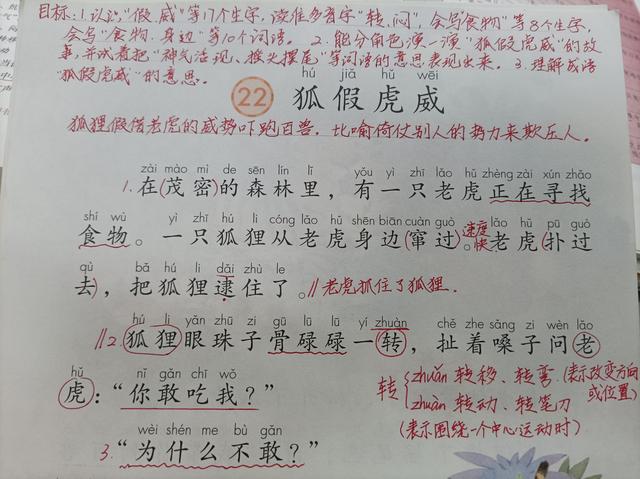 目标:1.认识“假、威”等17个生字,读准多音字“转、闷”,会写食物”等8个生字,
会写“食物、身边”等10个词语。 2.能分角色演一演“狐假虎威”的故
事,并试着把“神气活现、摇头摆尾”等词语的意思表现出来。 3.理解成语
“狐假虎威”的意思。
hú jiǎ hǔ wēi
22 狐假虎威
狐狸假借老虎的威势吓跑百兽,比喻倚仗别人的势力来欺压人。
zài mào mì de sēn lín lǐ yǒu yì zhī lǎo hǔ zhèng zài xún zhǎo
1.在(茂密)的森林里,有一只老虎正在寻找
shí wù yì zhī hú li cóng lǎo hǔ shēn biān cuàn guò lǎo hǔ pū guò
食物。一只狐狸从老虎身边(窜过)。速度快老虎(扑过
qù bǎ hú li dǎi zhù le
去),把狐狸逮住了。//老虎抓住了狐狸.
hú li yǎn zhū zi gū lū lū yí zhuàn chě zhe sǎng zi wèn lǎo
//2.狐狸眼珠子骨碌碌一转,扯着嗓子问老
hǔ nǐ gǎn chī wǒ
虎:“你敢吃我?”
转{zhuǎn 转移、转弯(表示改变方向或位置)
zhuàn 转动、转笔刀
(表示围绕一个中心运动时)
wèi shén me bù gǎn
3.“为什么不敢?”